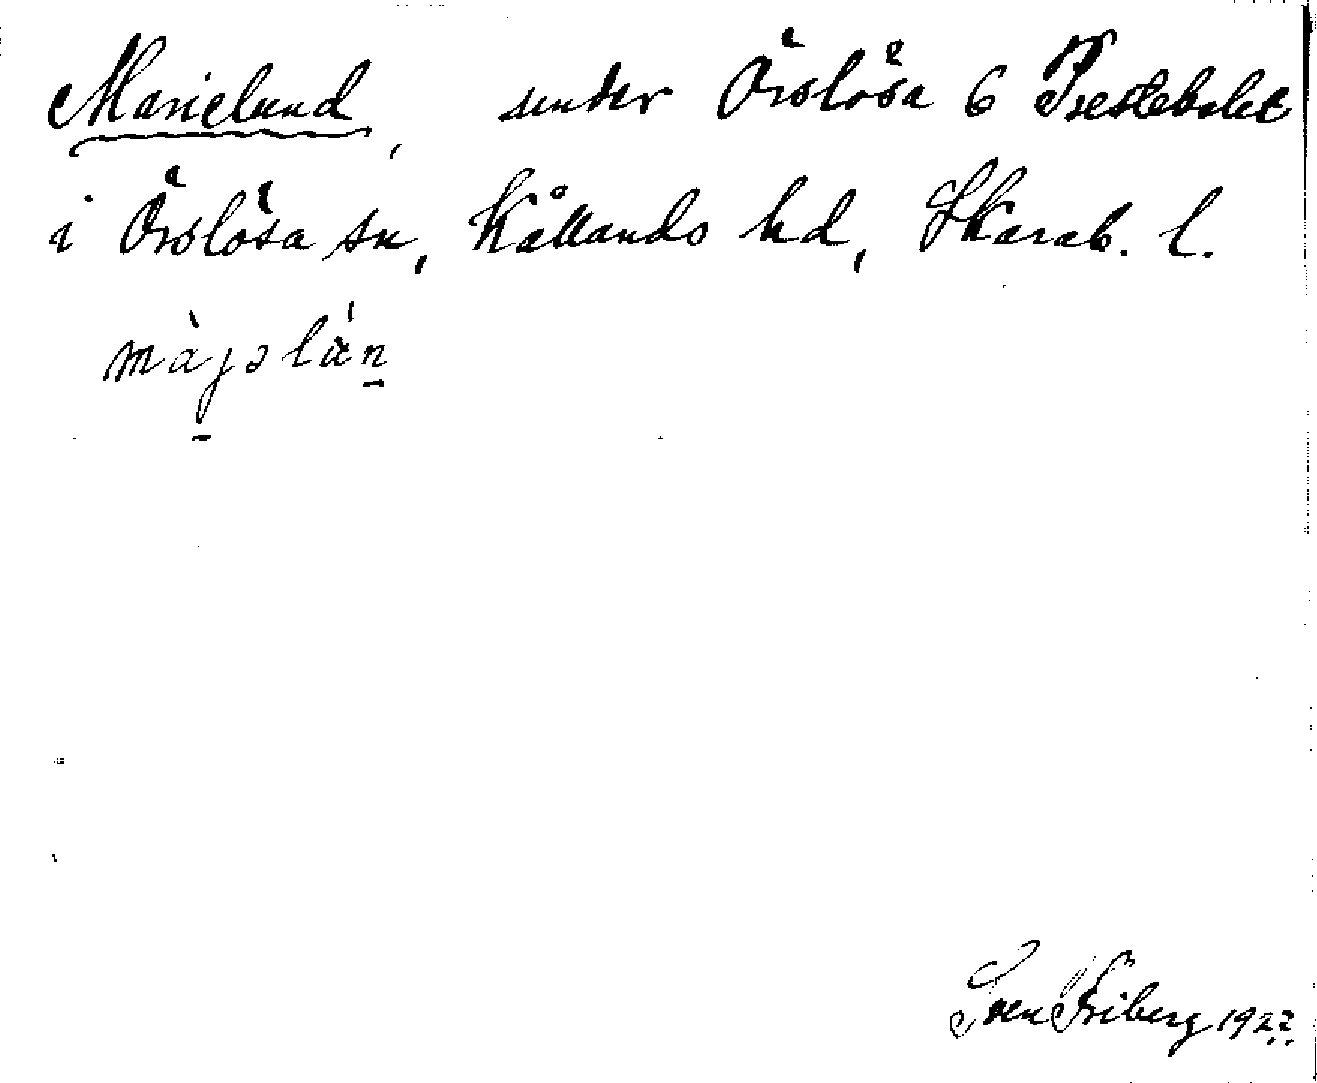 Marielund, under Örslösa 6 Prestebolet
i Örslösa sn, Kållands hd, Skarab. l.
màjəlán
Sven Friberg 1922